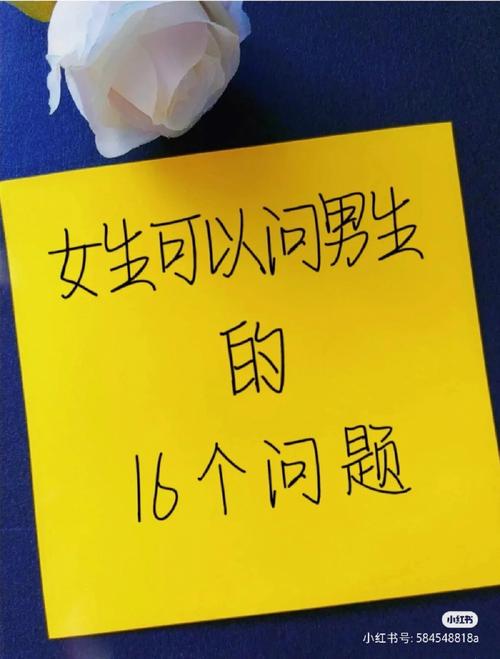 女生可以问男生
的
16个问题
小红书
小红书号: 584548818a